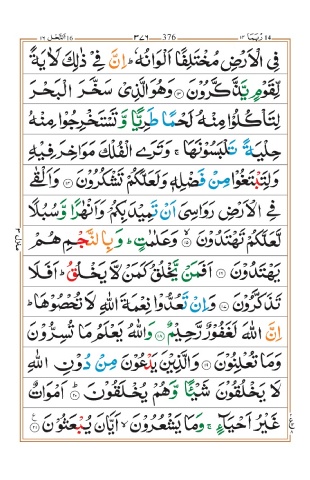 ربما ١٤ 376 ٣٧٦ النحل ١٦
فِى الۡاَرۡضِ مُخۡتَلِفًا اَلۡوَانُهٗ‌ؕ اِنَّ فِىۡ ذٰلِكَ لَاٰيَةً
لِّقَوۡمٍ يَّذَّكَّرُوۡنَ ﴿۱۳﴾ وَهُوَ الَّذِىۡ سَخَّرَ الۡبَحۡرَ
لِتَاۡكُلُوۡا مِنۡهُ لَحۡمًا طَرِيًّا وَّتَسۡتَخۡرِجُوۡا مِنۡهُ
حِلۡيَةً تَلۡبَسُوۡنَهَا‌ۚ وَتَرَى الۡفُلۡكَ مَوَاخِرَ فِيۡهِ
وَلِتَبۡتَغُوۡا مِنۡ فَضۡلِهٖ وَلَعَلَّكُمۡ تَشۡكُرُوۡنَ ﴿۱۴﴾ وَاَلۡقٰى
فِى الۡاَرۡضِ رَوَاسِىَ اَنۡ تَمِيۡدَ بِكُمۡ وَاَنۡهٰرًا وَّسُبُلًا
لَّعَلَّكُمۡ تَهۡتَدُوۡنَۙ ﴿۱۵﴾ وَعَلٰمٰتٍ‌ؕ وَبِالنَّجۡمِ هُمۡ
يَهۡتَدُوۡنَ ﴿۱۶﴾ اَفَمَنۡ يَّخۡلُقُ كَمَنۡ لَّا يَخۡلُقُ‌ؕ اَفَلَا
تَذَكَّرُوۡنَ ﴿۱۷﴾ وَاِنۡ تَعُدُّوۡا نِعۡمَةَ اللّٰهِ لَا تُحۡصُوۡهَاؕ
اِنَّ اللّٰهَ لَغَفُوۡرٌ رَّحِيۡمٌ‏ ﴿۱۸﴾ وَاللّٰهُ يَعۡلَمُ مَا تُسِرُّوۡنَ
وَمَا تُعۡلِنُوۡنَ ﴿۱۹﴾ وَالَّذِيۡنَ يَدۡعُوۡنَ مِنۡ دُوۡنِ اللّٰهِ
لَا يَخۡلُقُوۡنَ شَيۡـًٔا وَّهُمۡ يُخۡلَقُوۡنَؕ ﴿۲۰﴾ اَمۡوَاتٌ
غَيۡرُ اَحۡيَآءٍ‌ۚ وَمَا يَشۡعُرُوۡنَۙ اَيَّانَ يُبۡعَثُوۡنَ ﴿۲۱﴾